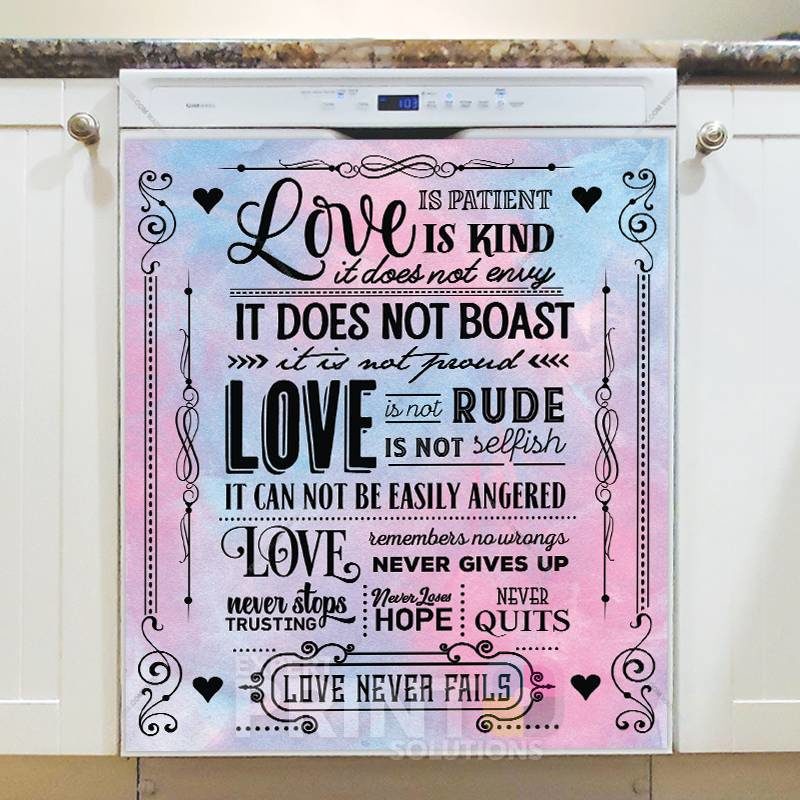 103
Love IS PATIENT
IS KIND
it does not envy
IT DOES NOT BOAST
it is not proud
LOVE is not RUDE
IS NOT selfish
IT CAN NOT BE EASILY ANGERED
LOVE remembers no wrongs
NEVER GIVES UP
never stops TRUSTING
Never Loses HOPE
NEVER QUITS
LOVE NEVER FAILS
EXPERT
PRINT
SOLUTIONS